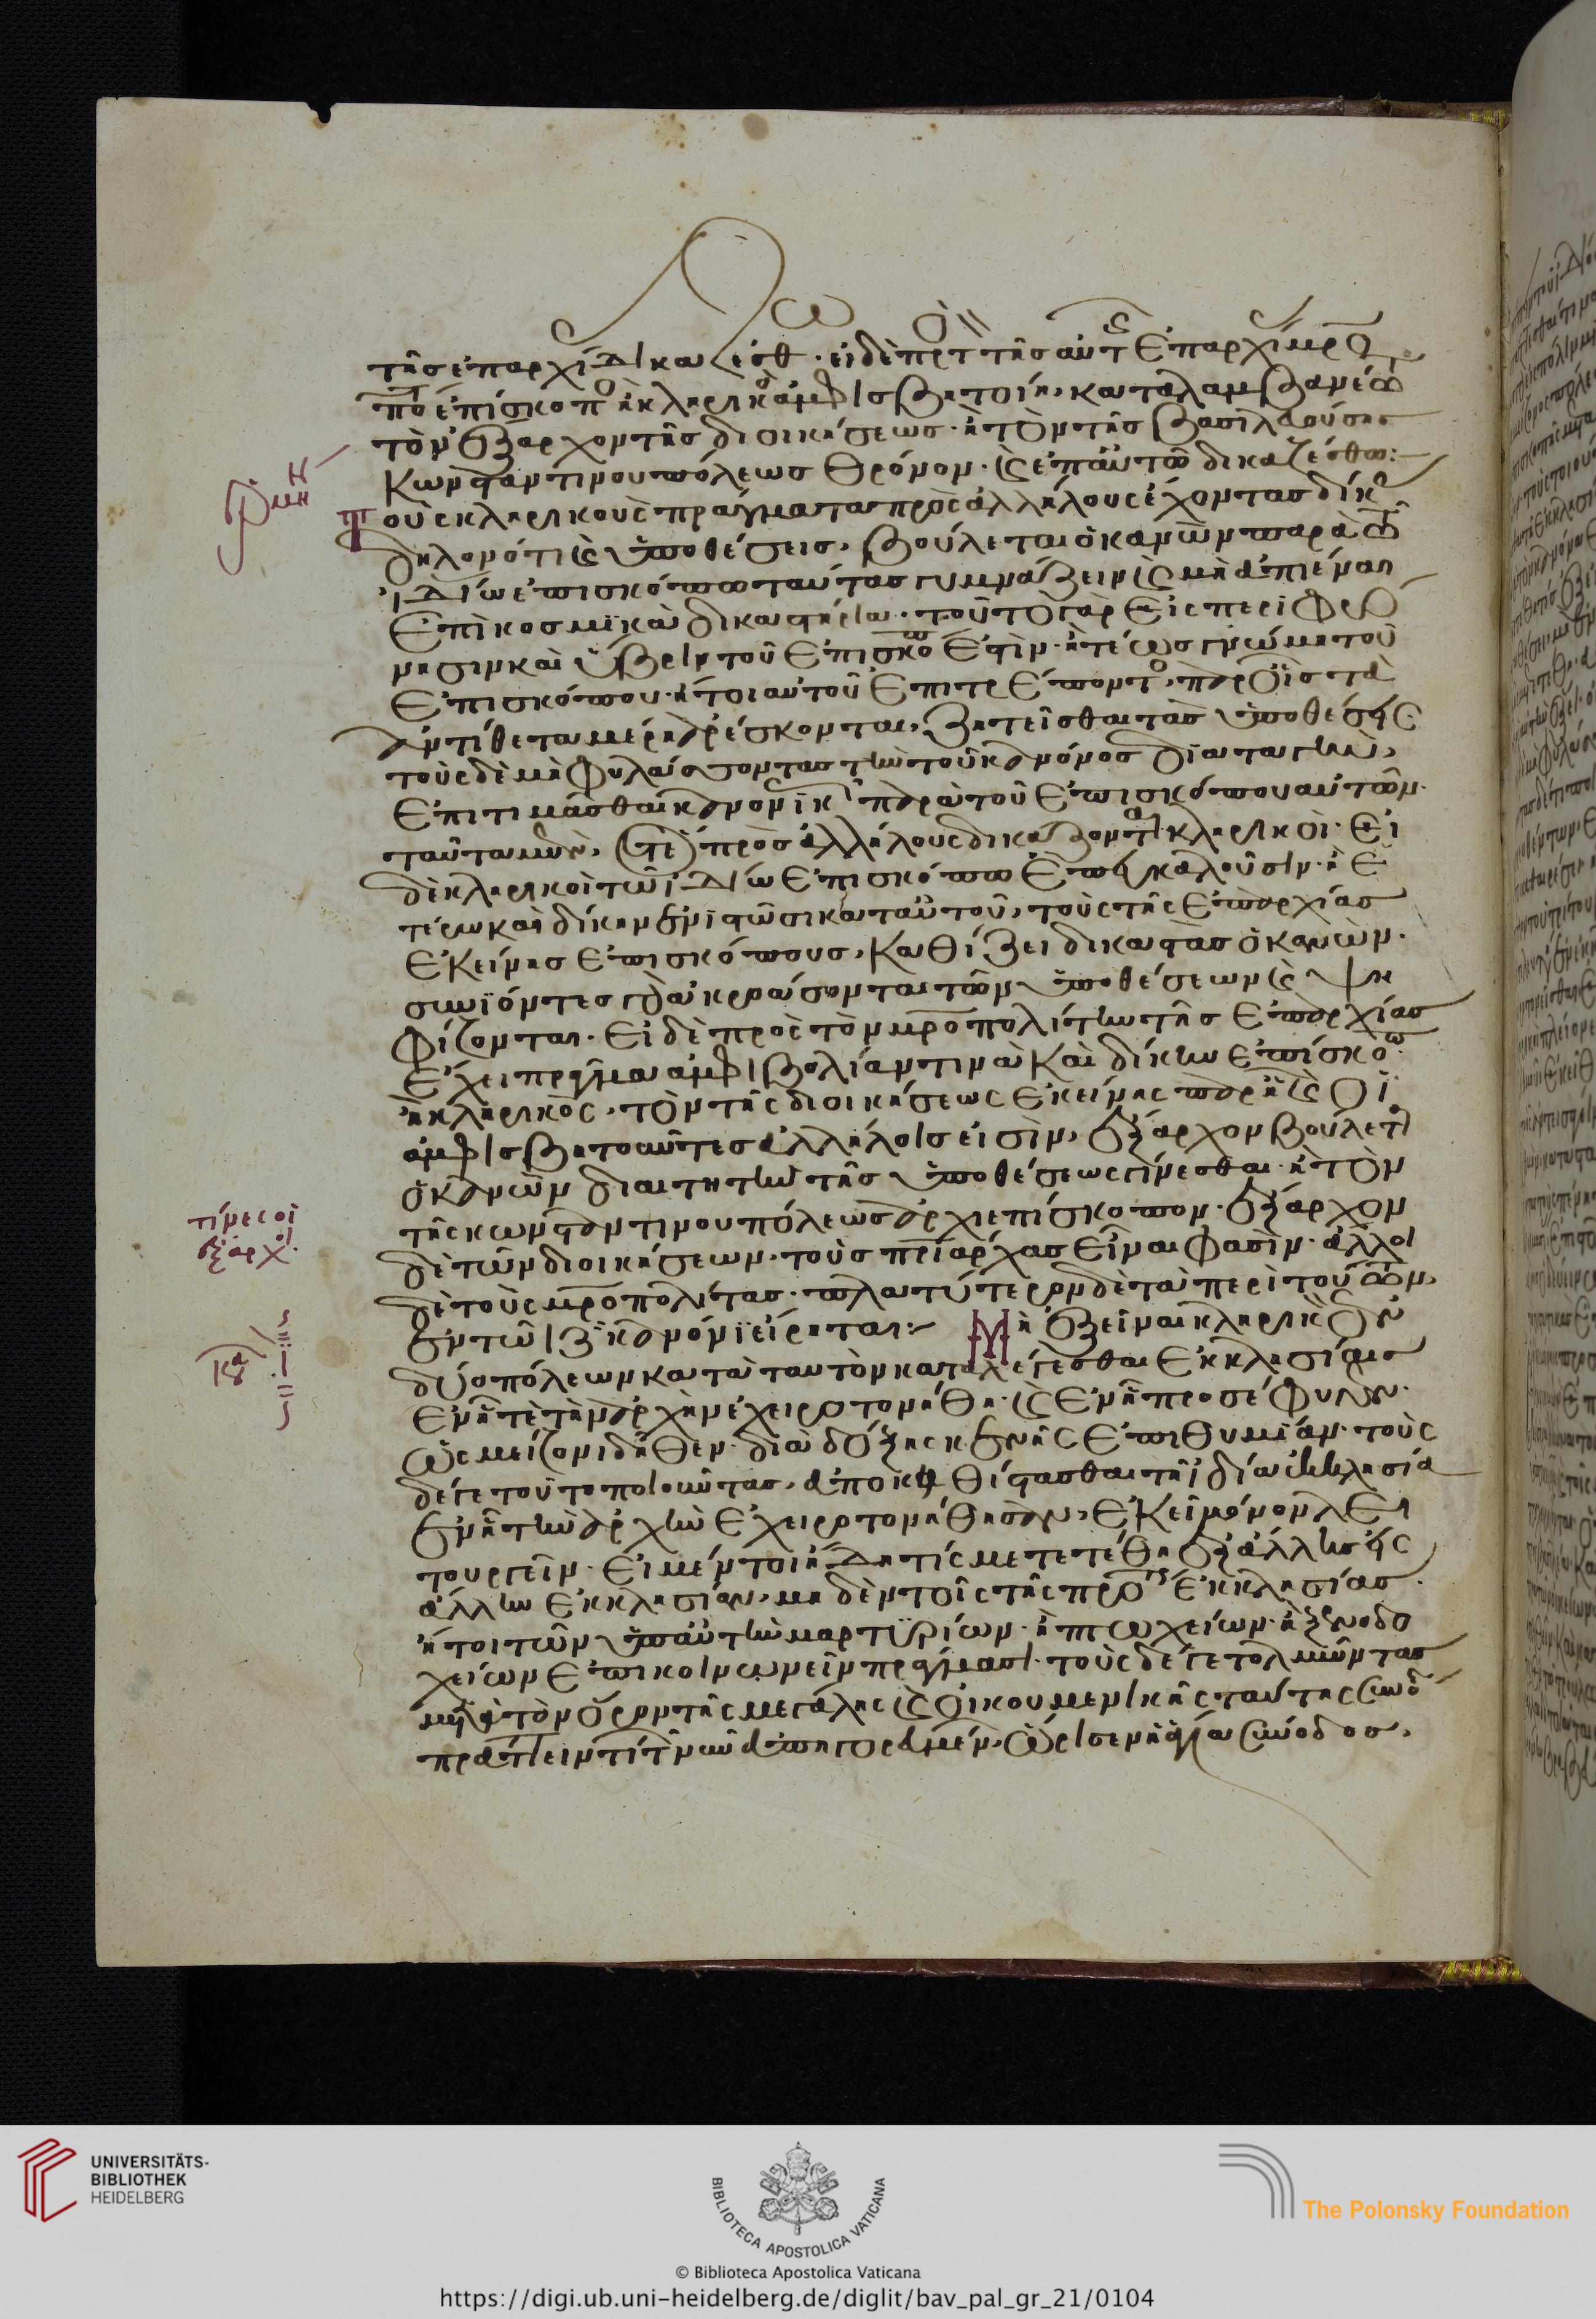 τῆς ἐπαρχί δικαζέσθ. εἰ δὲ πρ τ τῆς αὐτῆς ἐπαρχί μρο
πολ ἐπίσκοπος ἢ κληρικὸς ἀμφισβητοίη, καταλαμβανέτω
τὸν ἔξαρχον τῆς διοικήσεως· ἢ τὸν τῆς βασιλευούσης
Κωνσταντινουπόλεως θρόνον· καὶ ἐπ' αὐτῶ δικαζέσθω:
ἑρμην
Τοὺς κληρικοὺς πράγματα πρὸς ἀλλήλους ἔχοντας δίκας
δηλονότι καὶ ὑποθέσεις, βούλεται ὁ κανὼν παρὰ τῶ
ἰδίω ἐπισκόπω ταύτας γυμνάζειν καὶ μὴ ἀπιέναι
ἐπὶ κοσμικὰ δικαστήρια· τοῦτο γὰρ εἰς περιφρό
νησιν καὶ ὕβριν τοῦ ἐπισκόπου ἐστὶν· ἢ τέως γνώμη τοῦ
ἐπισκόπου· ἤτοι αὐτοῦ ἐπιτρέποντος, παρ' οἷς τὰ
ἀντίθετα μέρη ἀρέσκονται, ζητεῖσθαι τὰς ὑποθέσεις
τοὺς δὲ μὴ φυλάσσοντας τὴν τοῦ κανόνος διαταγὴν,
ἐπιτιμᾶσθαι κανονικῶς παρὰ τοῦ ἐπισκόπου αὐτῶν.
ταῦτα μὲν, ὅτε πρὸς ἀλλήλους δικάζονται κληρικοὶ· εἰ
δὲ κληρικοὶ τῶ ἰδίω ἐπισκόπω ἐπεγκαλοῦσιν· ἢ ἑ
τέρω καὶ δίκην ἐνιστῶσι κατ' αὐτοῦ, τοὺς τῆς ἐπαρχίας
ἐκείνης ἐπισκόπους, καθίζει δικαστὰς ὁ κανών.
συνϊόντες γὰρ ἀκροάσονται τῶν ὑποθέσεων καὶ ψη
φίζονται. εἰ δὲ πρὸς τὸν μροπολίτην τῆς ἐπαρχίας
ἔχει πρᾶγμα ἀμφιβολίαν τινὰ καὶ δίκην ἐπίσκοπος
ἢ κληρικὸς, τὸν τῆς διοικήσεως ἐκείνης παρ' ἧς οἱ
ἀμφισβητοῦντες ἀλλήλοις εἰσὶν, ἔξαρχον βούλεται
ὁ κανὼν διαιτητὴν τῆς ὑποθέσεως γίνεσθαι· ἢ τὸν
τίνες οἱ
ἔξαρχοι.
τῆς κωνσταντινουπόλεως ἀρχιεπίσκοπον. ἔξαρχον
δὲ τῶν διοικήσεων, τοὺς πατριάρχας εἶναι φασὶν· ἄλλοι
δὲ τοὺς μροπολίτας. πλατύτερον δὲ τὰ περὶ τούτων,
ἐν τῶ ιζ κανόνι εἴρηται: Μὴ ἐξεῖναι κληρικὸν ἐν
κα ι
δύο πόλεων κατὰ ταυτὸν καταλέγεσθαι ἐκκλησίαις
ἐν ἧ τε τὴν ἀρχὴν ἐχειροτονήθη. καὶ ἐν ἧ προσέφυγεν.
ὡς μείζονι δῆθεν. διὰ δόξης κενῆς ἐπιθυμίαν· τοὺς
δέ γε τοῦτο ποιοῦντας, ἀποκαθίστασθαι τῆ ἰδία ἐκκλησία
ἐν ἧ τὴν ἀρχὴν ἐχειροτονήθησαν, ἐκεῖ μόνον λει
τουργεῖν. εἰ μέντοι ἤδη τίς μετετέθη ἐξ ἄλλης εἰς
ἄλλην ἐκκλησίαν, μηδὲν τοῖς τῆς προτέρας ἐκκλησίας.
ἤτοι τῶν ὑπ' αὐτὴν μαρτυρίων· ἢ πτωχείων· ἢ ξενοδο
χείων ἐπικοινωνεῖν πράγμασι. τοὺς δέ γε τολμῶντας
μετὰ τὸν ὅρον τῆς μεγάλης καὶ οἰκουμενικῆς ταύτης συνόδου
πράττειν τί τῶν νῦν ἀπηγορευμένων, ὥρισεν ἡ ἁγία σύνοδος,
UNIVERSITÄTS-
BIBLIOTHEK
HEIDELBERG
BIBLIOTECA APOSTOLICA VATICANA
The Polonsky Foundation
© Biblioteca Apostolica Vaticana
https://digi.ub.uni-heidelberg.de/diglit/bav_pal_gr_21/0104